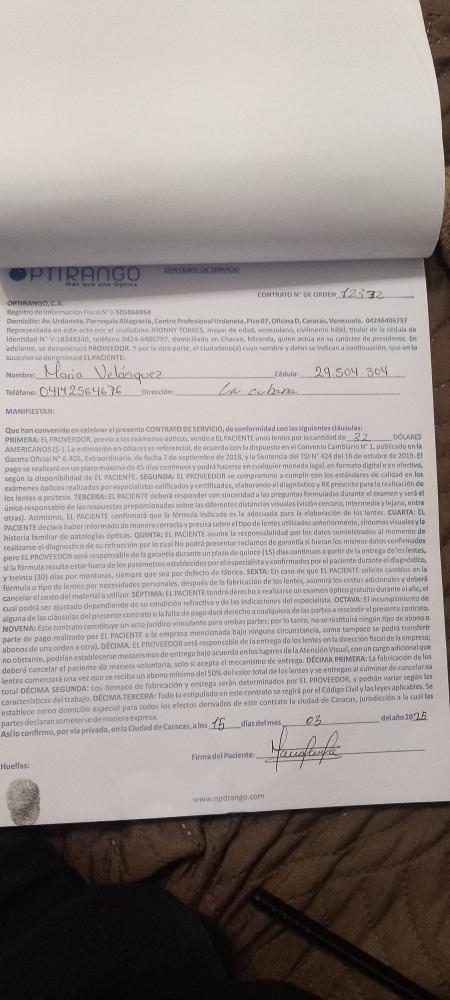 OPTIRANGO
Más que una Óptica
CONTRATO DE SERVICIO
CONTRATO N° DE ORDEN 12332
OPTIRANGO, C.A.
Registro de Información Fiscal N° J-505868454
Domicilio: Av. Urdaneta, Parroquia Altagracia, Centro Profesional Urdaneta, Piso 07, Oficina D, Caracas, Venezuela. 04246406797
Representada en este acto por el ciudadano JHONNY TORRES, mayor de edad, venezolano, civilmente hábil, titular de la cédula de
Identidad N° V-18348340, teléfono 0424-6406797, domiciliado en Chacao, Miranda, quien actúa en su carácter de presidente. En
adelante, se denominará PROVEEDOR. Y por la otra parte, el ciudadano(a) cuyo nombre y datos se indican a continuación, que en lo
sucesivo se denominará EL PACIENTE:
Nombre: Maria Velásquez Cédula: 29.504 304
Teléfono: 04142564676 Dirección: La cubana
MANIFIESTAN:
Que han convenido en celebrar el presente CONTRATO DE SERVICIO, de conformidad con las siguientes cláusulas:
PRIMERA: EL PROVEEDOR, previo a los exámenes ópticos, vende a EL PACIENTE unos lentes por la cantidad de 32 DÓLARES
AMERICANOS ($-). La estimación en dólares es referencial, de acuerdo con lo dispuesto en el Convenio Cambiario N° 1, publicado en la
Gaceta Oficial N° 6.405, Extraordinaria, de fecha 7 de septiembre de 2018, y la Sentencia del TSJ N° 424 del 16 de octubre de 2019. El
pago se realizará en un plazo máximo de 45 días continuos y podrá hacerse en cualquier moneda legal, en formato digital o en efectivo,
según la disponibilidad de EL PACIENTE. SEGUNDA: EL PROVEEDOR se compromete a cumplir con los estándares de calidad en los
exámenes ópticos realizados por especialistas calificados y certificados, elaborando el diagnóstico y RX prescrito para la realización de
los lentes o prótesis. TERCERA: EL PACIENTE deberá responder con sinceridad a las preguntas formuladas durante el examen y será el
único responsable de las respuestas proporcionadas sobre las diferentes distancias visuales (visión cercana, intermedia y lejana, entre
otras). Asimismo, EL PACIENTE confirmará que la fórmula indicada es la adecuada para la elaboración de los lentes. CUARTA: EL
PACIENTE declara haber informado de manera correcta y precisa sobre el tipo de lentes utilizados anteriormente, síntomas visuales y la
historia familiar de patologías ópticas. QUINTA: EL PACIENTE asume la responsabilidad por los datos suministrados al momento de
realizarse el diagnostico de su refracción por lo cual No podrá presentar reclamos de garantía si fueran los mismos datos confirmados
pero EL PROVEEDOR será responsable de la garantía durante un plazo de quince (15) días continuos a partir de la entrega de los lentes,
si la fórmula resulta estar fuera de los parámetros establecidos por el especialista y confirmados por el paciente durante el diagnóstico,
y treinta (30) días por monturas, siempre que sea por defecto de fábrica. SEXTA: En caso de que EL PACIENTE solicite cambios en la
fórmula o tipo de lentes por necesidades personales, después de la fabricación de los lentes, asumirá los costos adicionales y deberá
cancelar el costo del material a utilizar. SÉPTIMA: EL PACIENTE tendrá derecho a realizarse un examen óptico gratuito durante el año, el
cual podrá ser ajustado dependiendo de su condición refractiva y de las indicaciones del especialista. OCTAVA: El incumplimiento de
alguna de las cláusulas del presente contrato o la falta de pago dará derecho a cualquiera de las partes a rescindir el presente contrato.
NOVENA: Este contrato constituye un acto jurídico vinculante para ambas partes; por lo tanto, no se restituirá ningún tipo de abono o
parte de pago realizado por EL PACIENTE a la empresa mencionada bajo ninguna circunstancia, como tampoco se podrá transferir
abonos de una orden a otra). DÉCIMA: EL PROVEEDOR será responsable de la entrega de los lentes en la dirección fiscal de la empresa;
no obstante, podrían establecerse mecanismos de entrega bajo acuerdo en los lugares de la Atención Visual, con un cargo adicional que
deberá cancelar el paciente de manera voluntaria, solo si acepta el mecanismo de entrega. DÉCIMA PRIMERA: La fabricación de los
lentes comenzará una vez que se reciba un abono mínimo del 50% del valor total de los lentes y se entregan al culminar de cancelar su
total DÉCIMA SEGUNDA: Los tiempos de fabricación y entrega serán determinados por EL PROVEEDOR, y podrán variar según las
características del trabajo. DÉCIMA TERCERA: Todo lo estipulado en este contrato se regirá por el Código Civil y las leyes aplicables. Se
establece como domicilio especial para todos los efectos derivados de este contrato la ciudad de Caracas, jurisdicción a la cual las
partes declaran someterse de manera expresa.
Así lo confirmo, por vía privada, en la Ciudad de Caracas, a los 15 días del mes 03 del año 2025
Firma del Paciente:
Huellas:
www.optirango.com